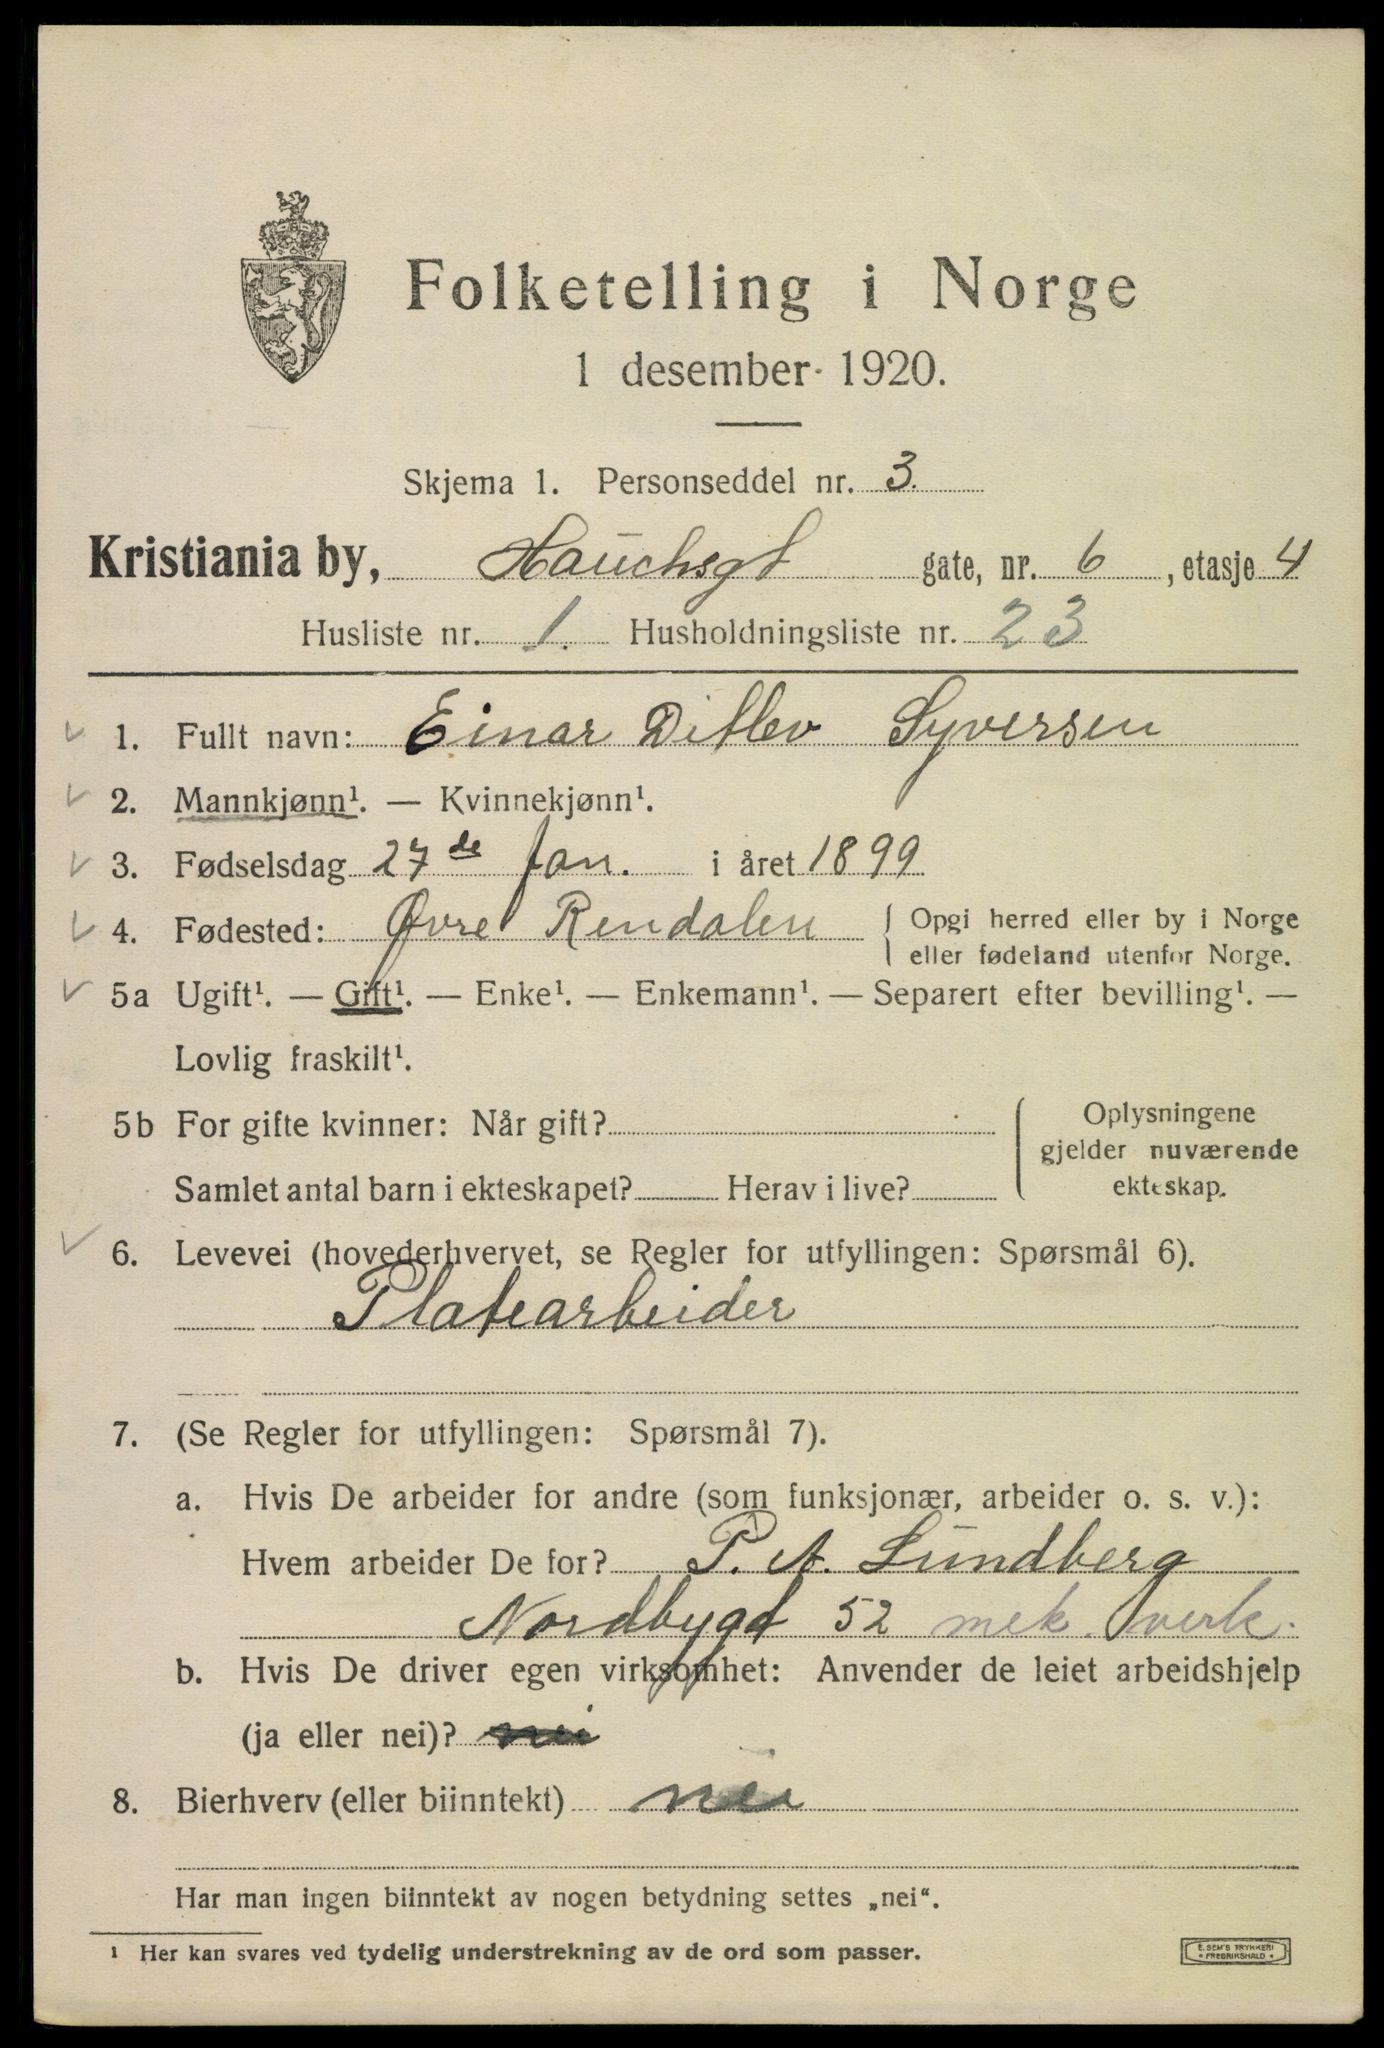 Folketelling i Norge
1 desember 1920.
Skjema 1. Personseddel nr. 3.
Kristiania by, Hauchsgt gate, nr. 6, etasje 4
Husliste nr. 1. Husholdningsliste nr. 23
1. Fullt navn: Einar Ditlev Syversen
2. Mannkjønn¹. — Kvinnekjønn¹.
3. Fødselsdag 27de Jan. i året 1899
4. Fødested: Øvre Rendalen { Opgi herred eller by i Norge
eller fødeland utenfor Norge.
5a Ugift¹. — Gift¹. — Enke¹. — Enkemann¹. — Separert efter bevilling¹. —
Lovlig fraskilt¹.
5b For gifte kvinner: Når gift? { Oplysningene
gjelder nuværende
Samlet antal barn i ekteskapet? Herav i live? ekteskap.
6. Levevei (hovederhvervet, se Regler for utfyllingen: Spørsmål 6).
Platearbeider
7. (Se Regler for utfyllingen: Spørsmål 7).
a. Hvis De arbeider for andre (som funksjonær, arbeider o. s. v.):
Hvem arbeider De for? P. A. Lundberg
Nordbygt 52 mek. verk.
b. Hvis De driver egen virksomhet: Anvender de leiet arbeidshjelp
(ja eller nei)? nei
8. Bierhverv (eller biinntekt) nei
Har man ingen biinntekt av nogen betydning settes „nei“.
¹ Her kan svares ved tydelig understrekning av de ord som passer.
E. SEM'S TRYKKERI
* FREDRIKSHALD *